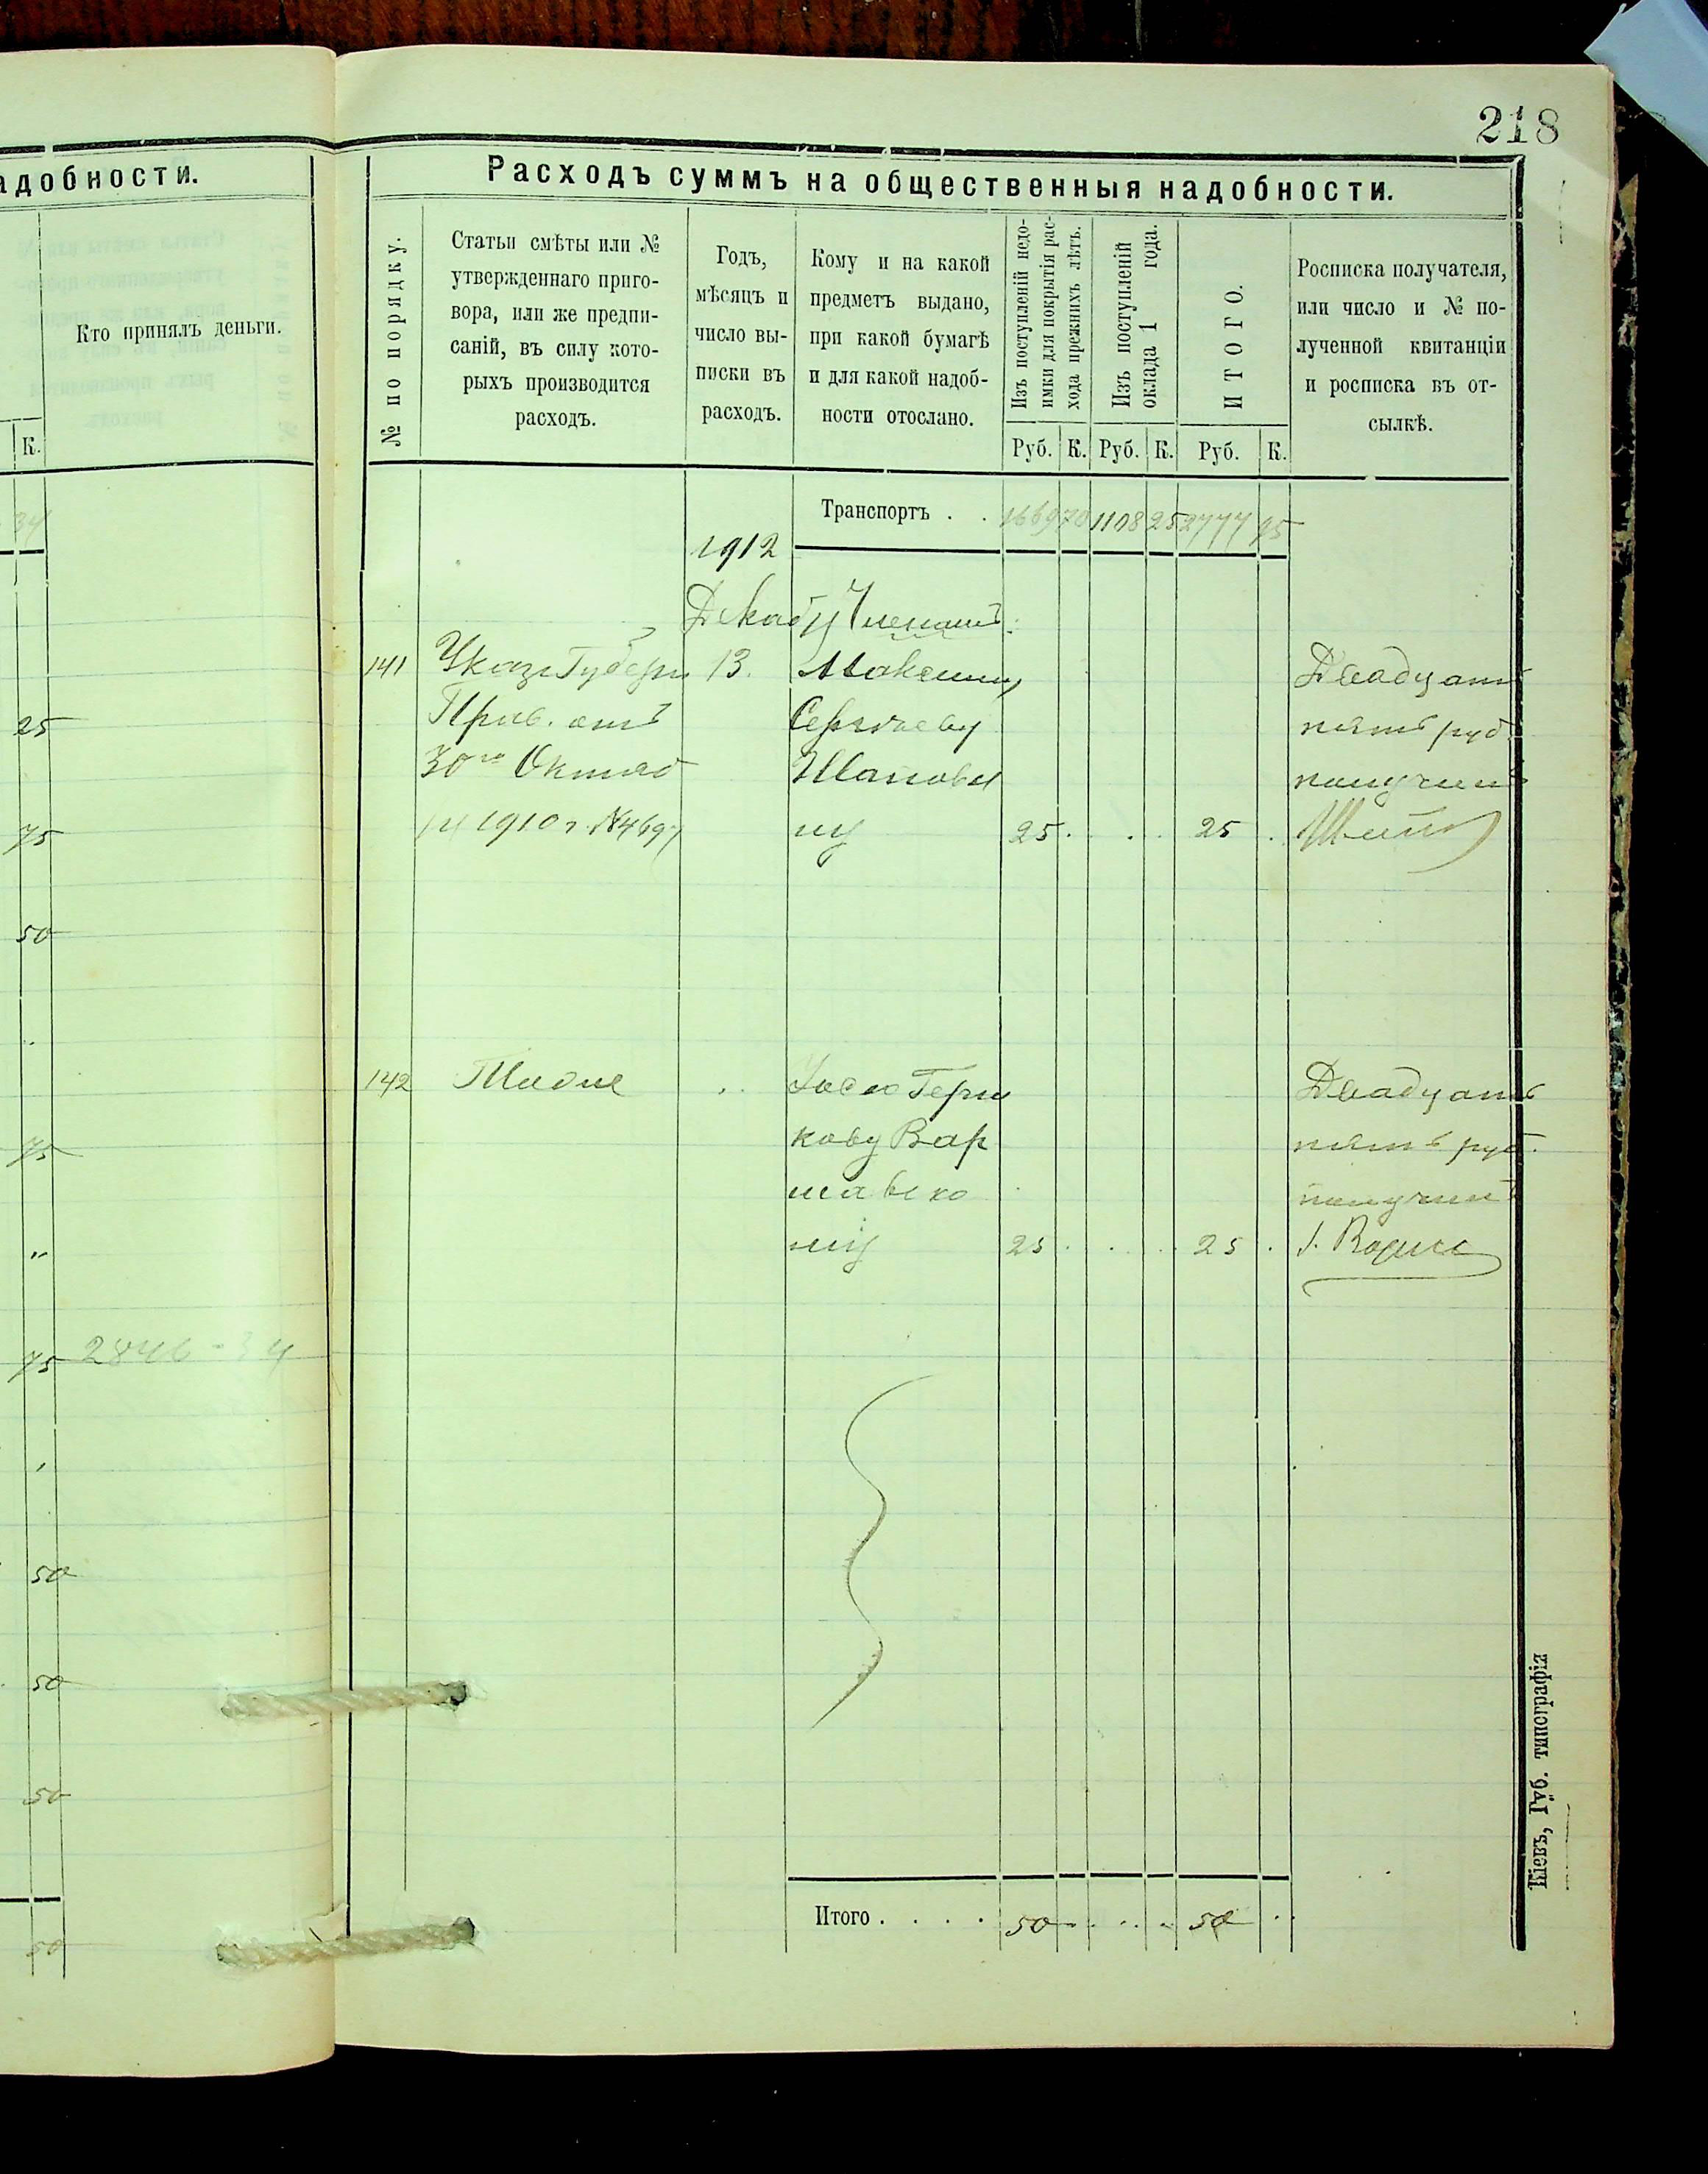 218
адобности.
Кто принялъ деньги.
К.
34
25
75
50
75
"
75 2846-34
50
50
50
50
Расходъ суммъ на общественныя надобности.
№ по порядку.
Статьи смѣты или №
утвержденнаго приго-
вора, или же предпи-
саній, въ силу кото-
рыхъ производится
расходъ.
Годъ,
мѣсяцъ и
число вы-
писки въ
расходъ.
Кому и на какой
предметъ выдано,
при какой бумагѣ
и для какой надоб-
ности отослано.
Изъ поступленій недо-
имки для покрытія рас-
хода прежнихъ лѣтъ.
Изъ поступленій
оклада 1 года.
ИТОГО.
Росписка получателя,
или число и № по-
лученной квитанціи
и росписка въ от-
сылкѣ.
Руб. К. Руб. К. Руб. К.
Транспортъ . . 1669 70 1108 25 2777 95
1912
Декаб
141 Указ Губерн 13.
Прав. отъ
30го Октяб
ря 1910 г. №4697
Двадцать
пять руб
получилъ
25 . . . 25 .
142 Тоже
Двадцать
пять руб.
получилъ
кову Вар
шавско
му 25 . . . 25 .
Итого . . . . 50 . . . . 50 . .
Кіевъ, Губ. типографія